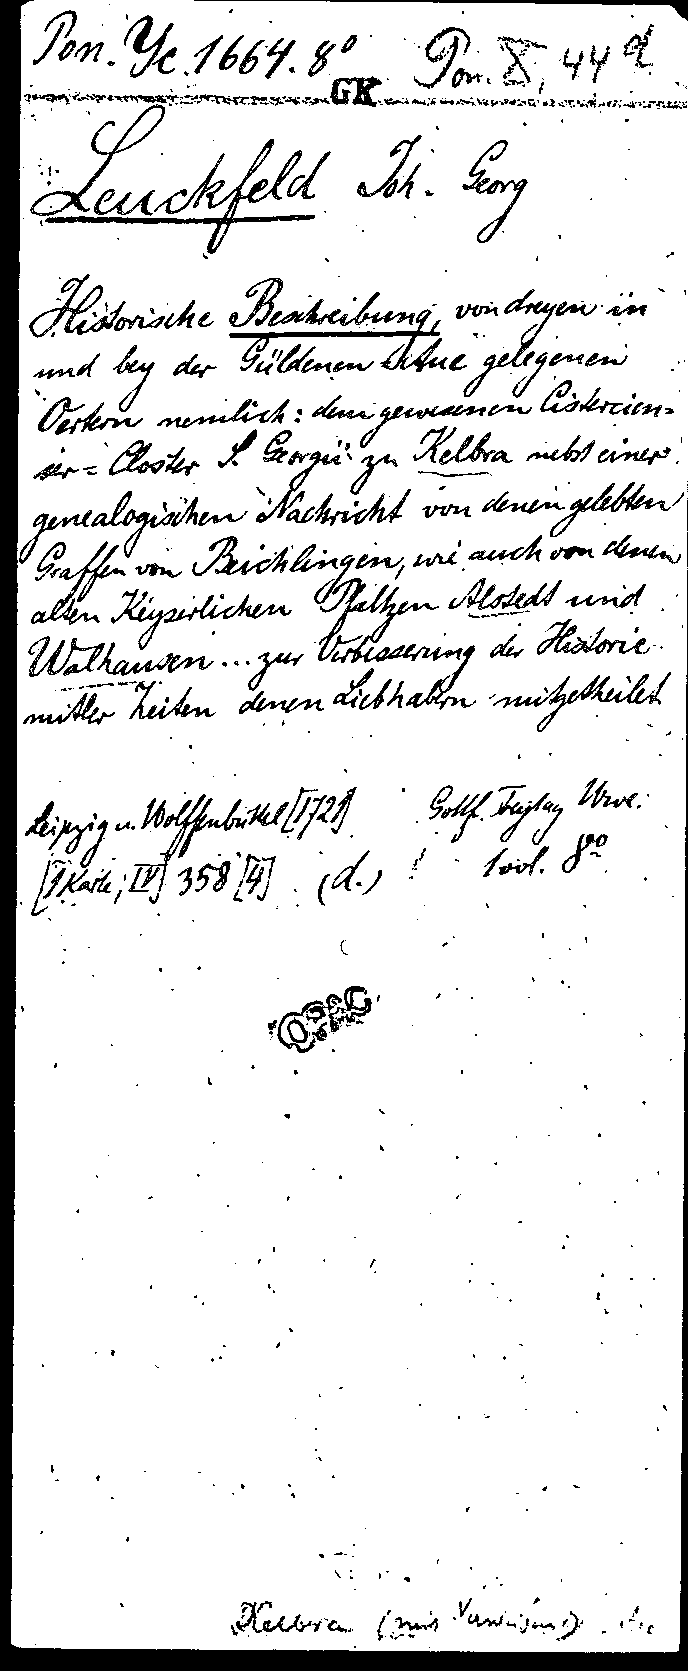 Pon. Yc. 1664. 8° Pon. X, 44 d
GK
Leuckfeld Joh. Georg
Historische Beschreibung, von dreyen in
und bey der Güldenen Aue gelegenen
Oertern nemlich: dem gewesenen Cistercien=
ser=Closter S. Georgii zu Kelbra nebst einer
genealogischen Nachricht von denen gelebten
Graffen von Beichlingen, wie auch von denen
alten Keyserlichen Pfaltzen Alstedt und
Walhausen... zur Verbesserung der Historie
mitler Zeiten denen Liebhabern mitgetheilet
Leipzig u. Wolffenbüttel [1721] Gottf. Freytag Wwe.
[1 Karte; IV] 358 [4] (d.) 1 vol. 8°
OPAC
Kelbra (mit Verweisung)